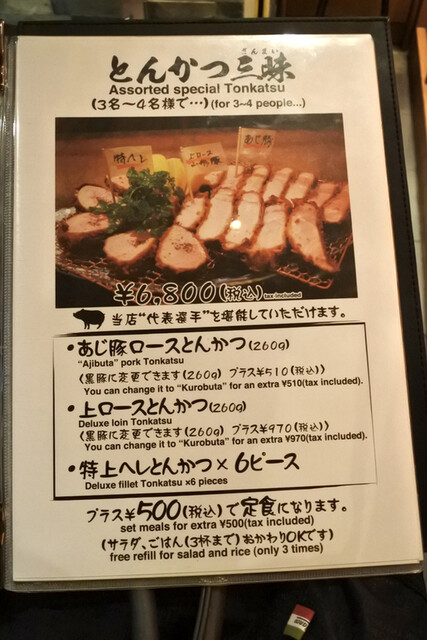 さんまい
とんかつ三昧
Assorted special Tonkatsu
(3名～4名様で…)(for 3~4 people...)
特ヘレ
上ロース
あじ豚
¥6,800(税込)tax included
当店“代表選手”を堪能していただけます。
・あじ豚ロースとんかつ(260g)
"Ajibuta" pork Tonkatsu
〈黒豚に変更できます(260g) プラス¥510(税込)〉
You can change it to "Kurobuta" for an extra ¥510(tax included).
・上ロースとんかつ(260g)
Deluxe loin Tonkatsu
〈黒豚に変更できます(260g) プラス¥970(税込)〉
You can change it to "Kurobuta" for an extra ¥970(tax included).
・特上ヘレとんかつ×6ピース
Deluxe fillet Tonkatsu ×6 pieces
プラス¥500(税込)で定食になります。
set meals for extra ¥500(tax included)
(サラダ、ごはん(3杯まで)おかわりOKです)
free refill for salad and rice (only 3 times)